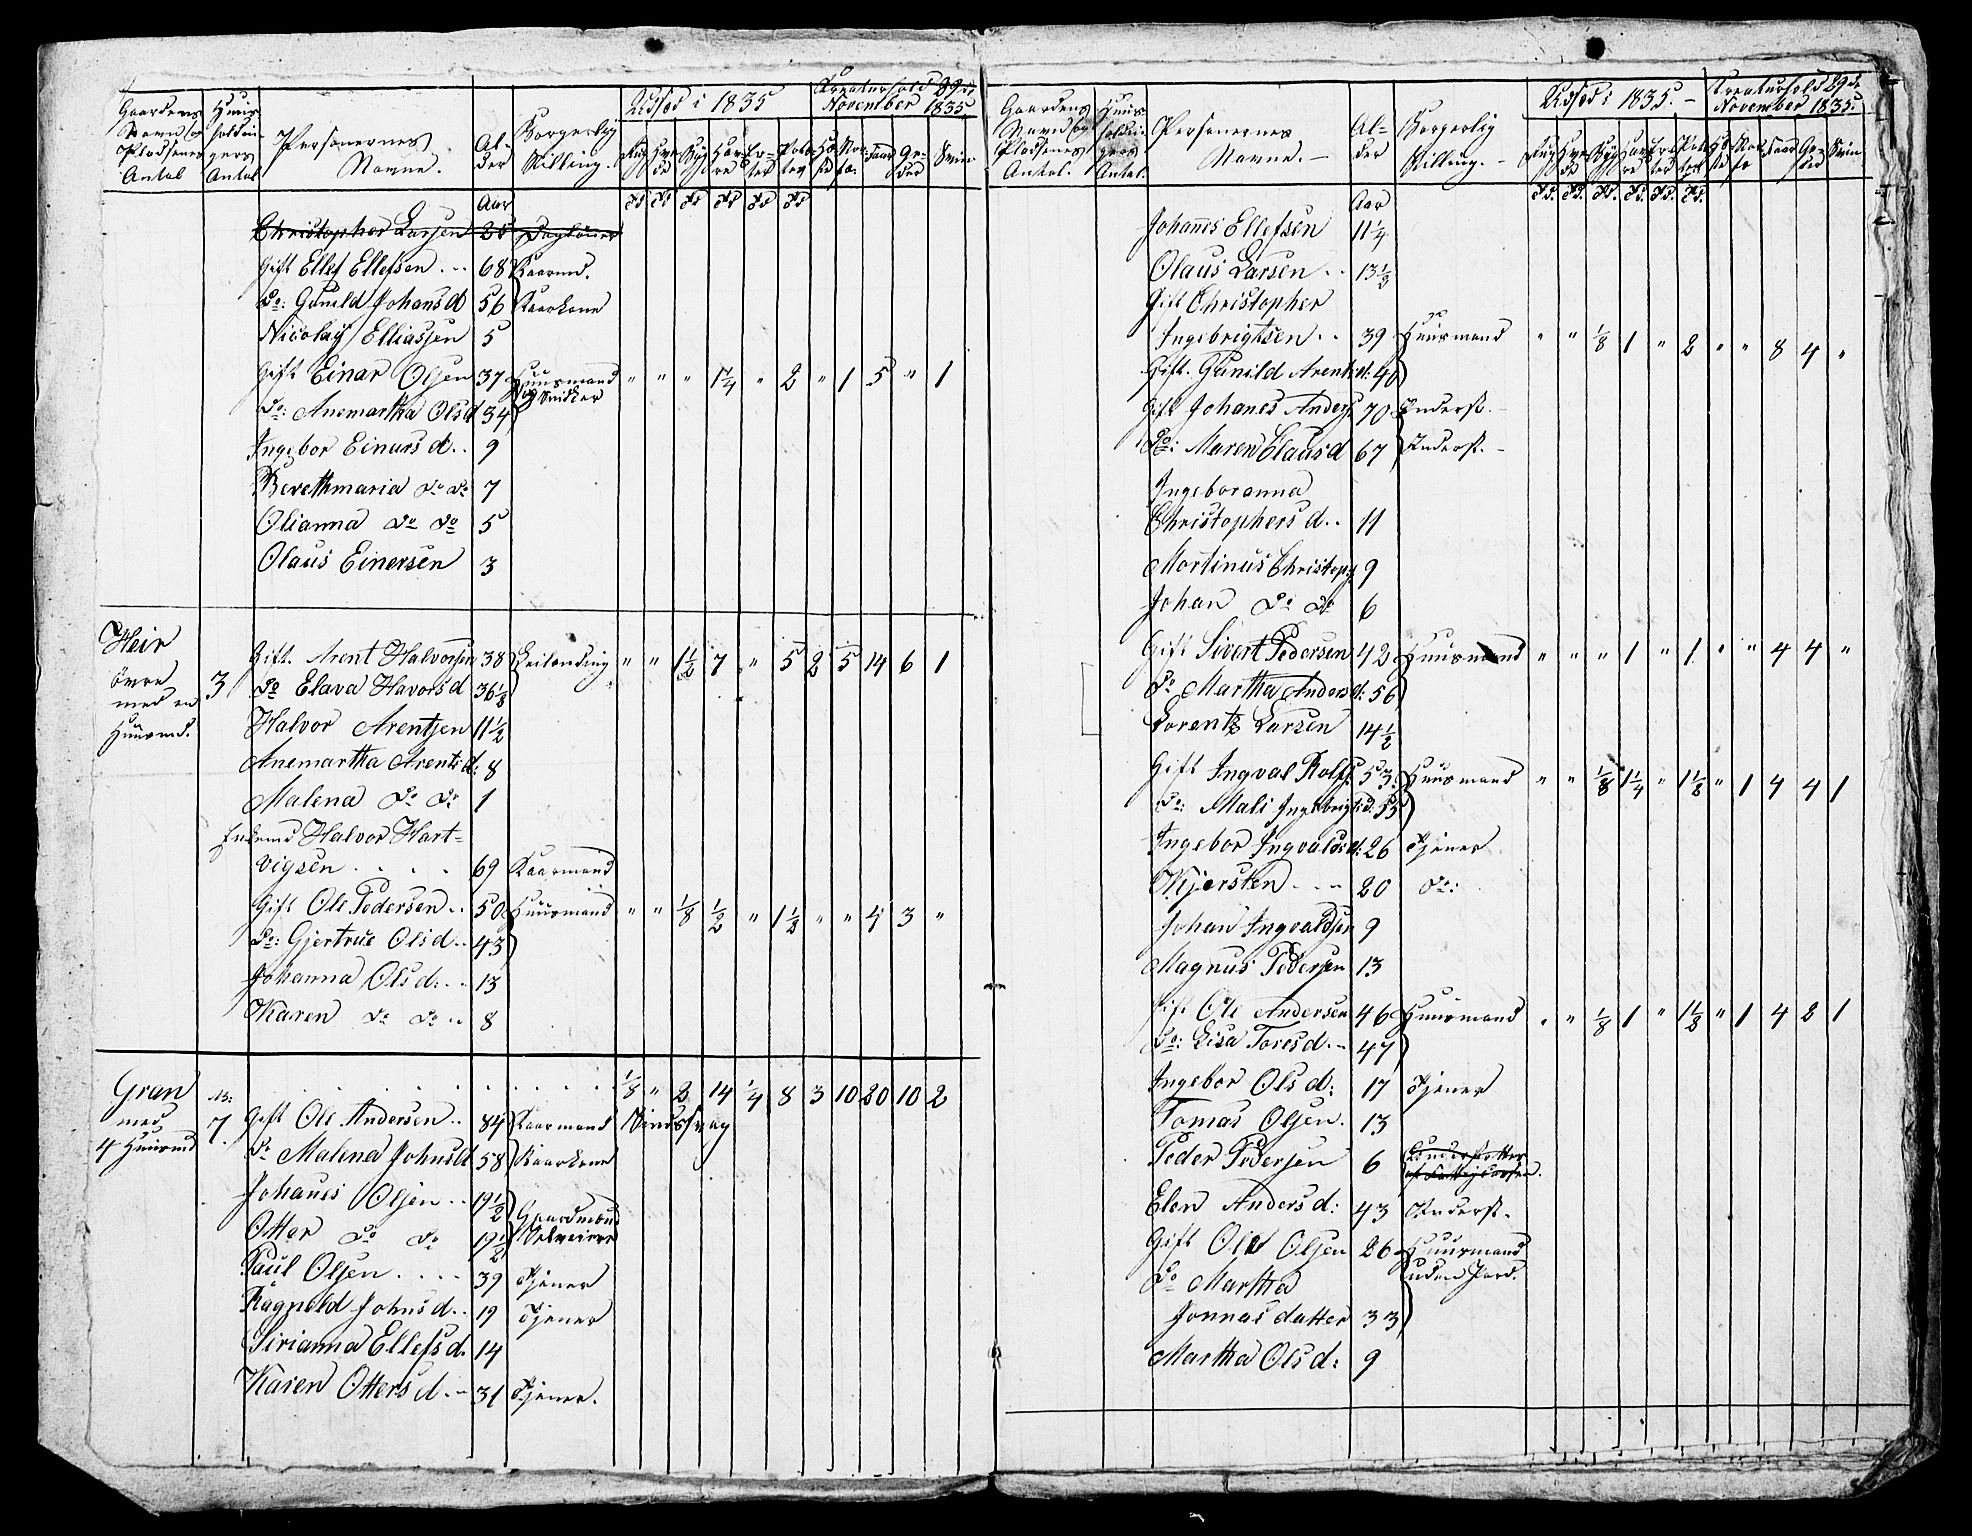 Gaardenes Navn og Pladsenes Antal | Huusholdningers Antal | Personernes Navne. | Alder | Borgerlig Stilling. | Udsæd i 1835 | Kreaturhold 29de November 1835
Rug | Hvede | Byg | Havre | Erter | Poteter | Heste | Storfæ | Faar | Geder | Sviin
Aar | Td | Td | Td | Td | Td | Td
Christopher Larsen 25 Dagløner
Gift Ellef Ellefsen .. 68 Kaarmd.
Do: Gunild Johansd 56 Kaarkone
Nicolay Elliassen 5
Gift Einar Olsen 37 Huusmand og Snidker " " " 1 1/4 " 2 " 1 5 " 1
Do: Anemartha Olsd 34
Ingebor Einarsd.. 9
Berethmaria do do 7
Olianna do do 5
Olaus Einersen 3
Heir övre med en Huusmd. 3
Gift. Arent Halvorsen 38 Leilending " " 1 1/2 7 " 5 2 5 14 6 1
do Elava Havorsd 36 1/2
Halvor Arentsen 11 1/2
Anemartha Arentsd: 8
Malena do do 1
Enkemd Halvor Hart-
vigsen . . . . 69 Kaarmand
Gift Ole Pedersen .. 50 Huusmand " " 1/8 1/2 " 1 1/2 " " 4 3 "
Do: Gjertrue Olsd.. 43
Johanna Olsd: .. 13
Karen do do .. 8
Gran med 4 Huusmd 7 . . . . . . . . 1/8 " 2 14 1/4 8 3 10 20 10 2
Gift Ole Andersen .. 84 Kaarmand
do Malena Johnsd 58 Kaarkone
Johanes Olsen .. 19 1/2 Gaardmænd Selveiere
Otter do do 19 1/2
Paul Olsen . . . . 39 Tjener
Ragneld Johnsd.. 19 Tjener
Sirianna Ellefsd. 14
Karen Ottersd .. 31 Tjener.
Gaardens Navn og Pladsenes Antal. | Huusholdningers Antal. | Personernes Navne. - | Alder | Borgerlig Stilling. - | Udsæd i 1835. - | Kreaturhold 29de November 1835.
Rug | Hvede | Byg | Havre | Erter | Poteter | Heste | Storfæ | Faar | Geder | Sviin
Aar | Td. | Td. | Td. | Td. | Td. | Td.
Johanes Ellefsen 11 1/4
Olaus Larsen .. 13 1/2
Gift Christopher
Ingebrigtsen .. 39 Huusmand " " 1/8 1 " 2 " " 8 4 "
Gift. Gunild Arentsd: 40
Gift Johanes Anders 70 Inderst. -
Do: Maren Clausd 67 Inderst. -
Ingeboranna
Christophersd .. 11
Mortinus Christoph 9
Johan do do 6
Gift Sivert Pedersen 42 Huusmand " " " 1 " 1 " " 4 4 "
do Martha Andersd: 56
Lorentz Larsen 14 1/2
Gift Ingval Rolfs. 53 Huusmand " " 1/8 1 1/4 " 1 1/2 " 1 4 4 1
do: Mali Ingebrigtsd: 55
Ingebor Ingvaldsd: 26 Tjener
Kjersten - - - 20 do:
Johan Ingvaldsen 9
Magnus Pedersen 13
Gift Ole Andersen 46 Huusmand " " 1/8 1 " 1 1/2 " 1 4 2 1
Do: Lisa Toresd .. 47
Ingebor Olsd: 17 Tjener
Tomas Olsen. 13
Peder Pedersen 6
Elen Andersd: 43 Inderst.
Gift Ole Olsen 26 Huusmand
Do Martha uden Jord.
Jonnasdatter 33
Martha Olsd: 9